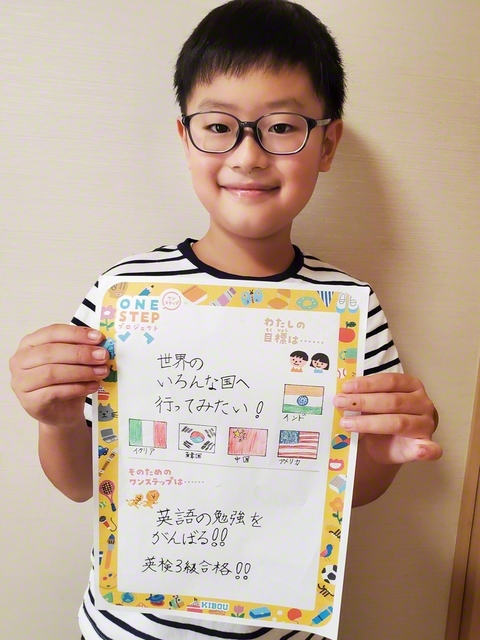 ONE
STEP
プロジェクト
わたしの
もくひょう
目標は……
世界の
いろんな国へ
行ってみたい!
インド
イタリア
韓国
中国
アメリカ
そのための
ワンステップは……
英語の勉強を
がんばる!!
英検3級合格!!
KIBOU